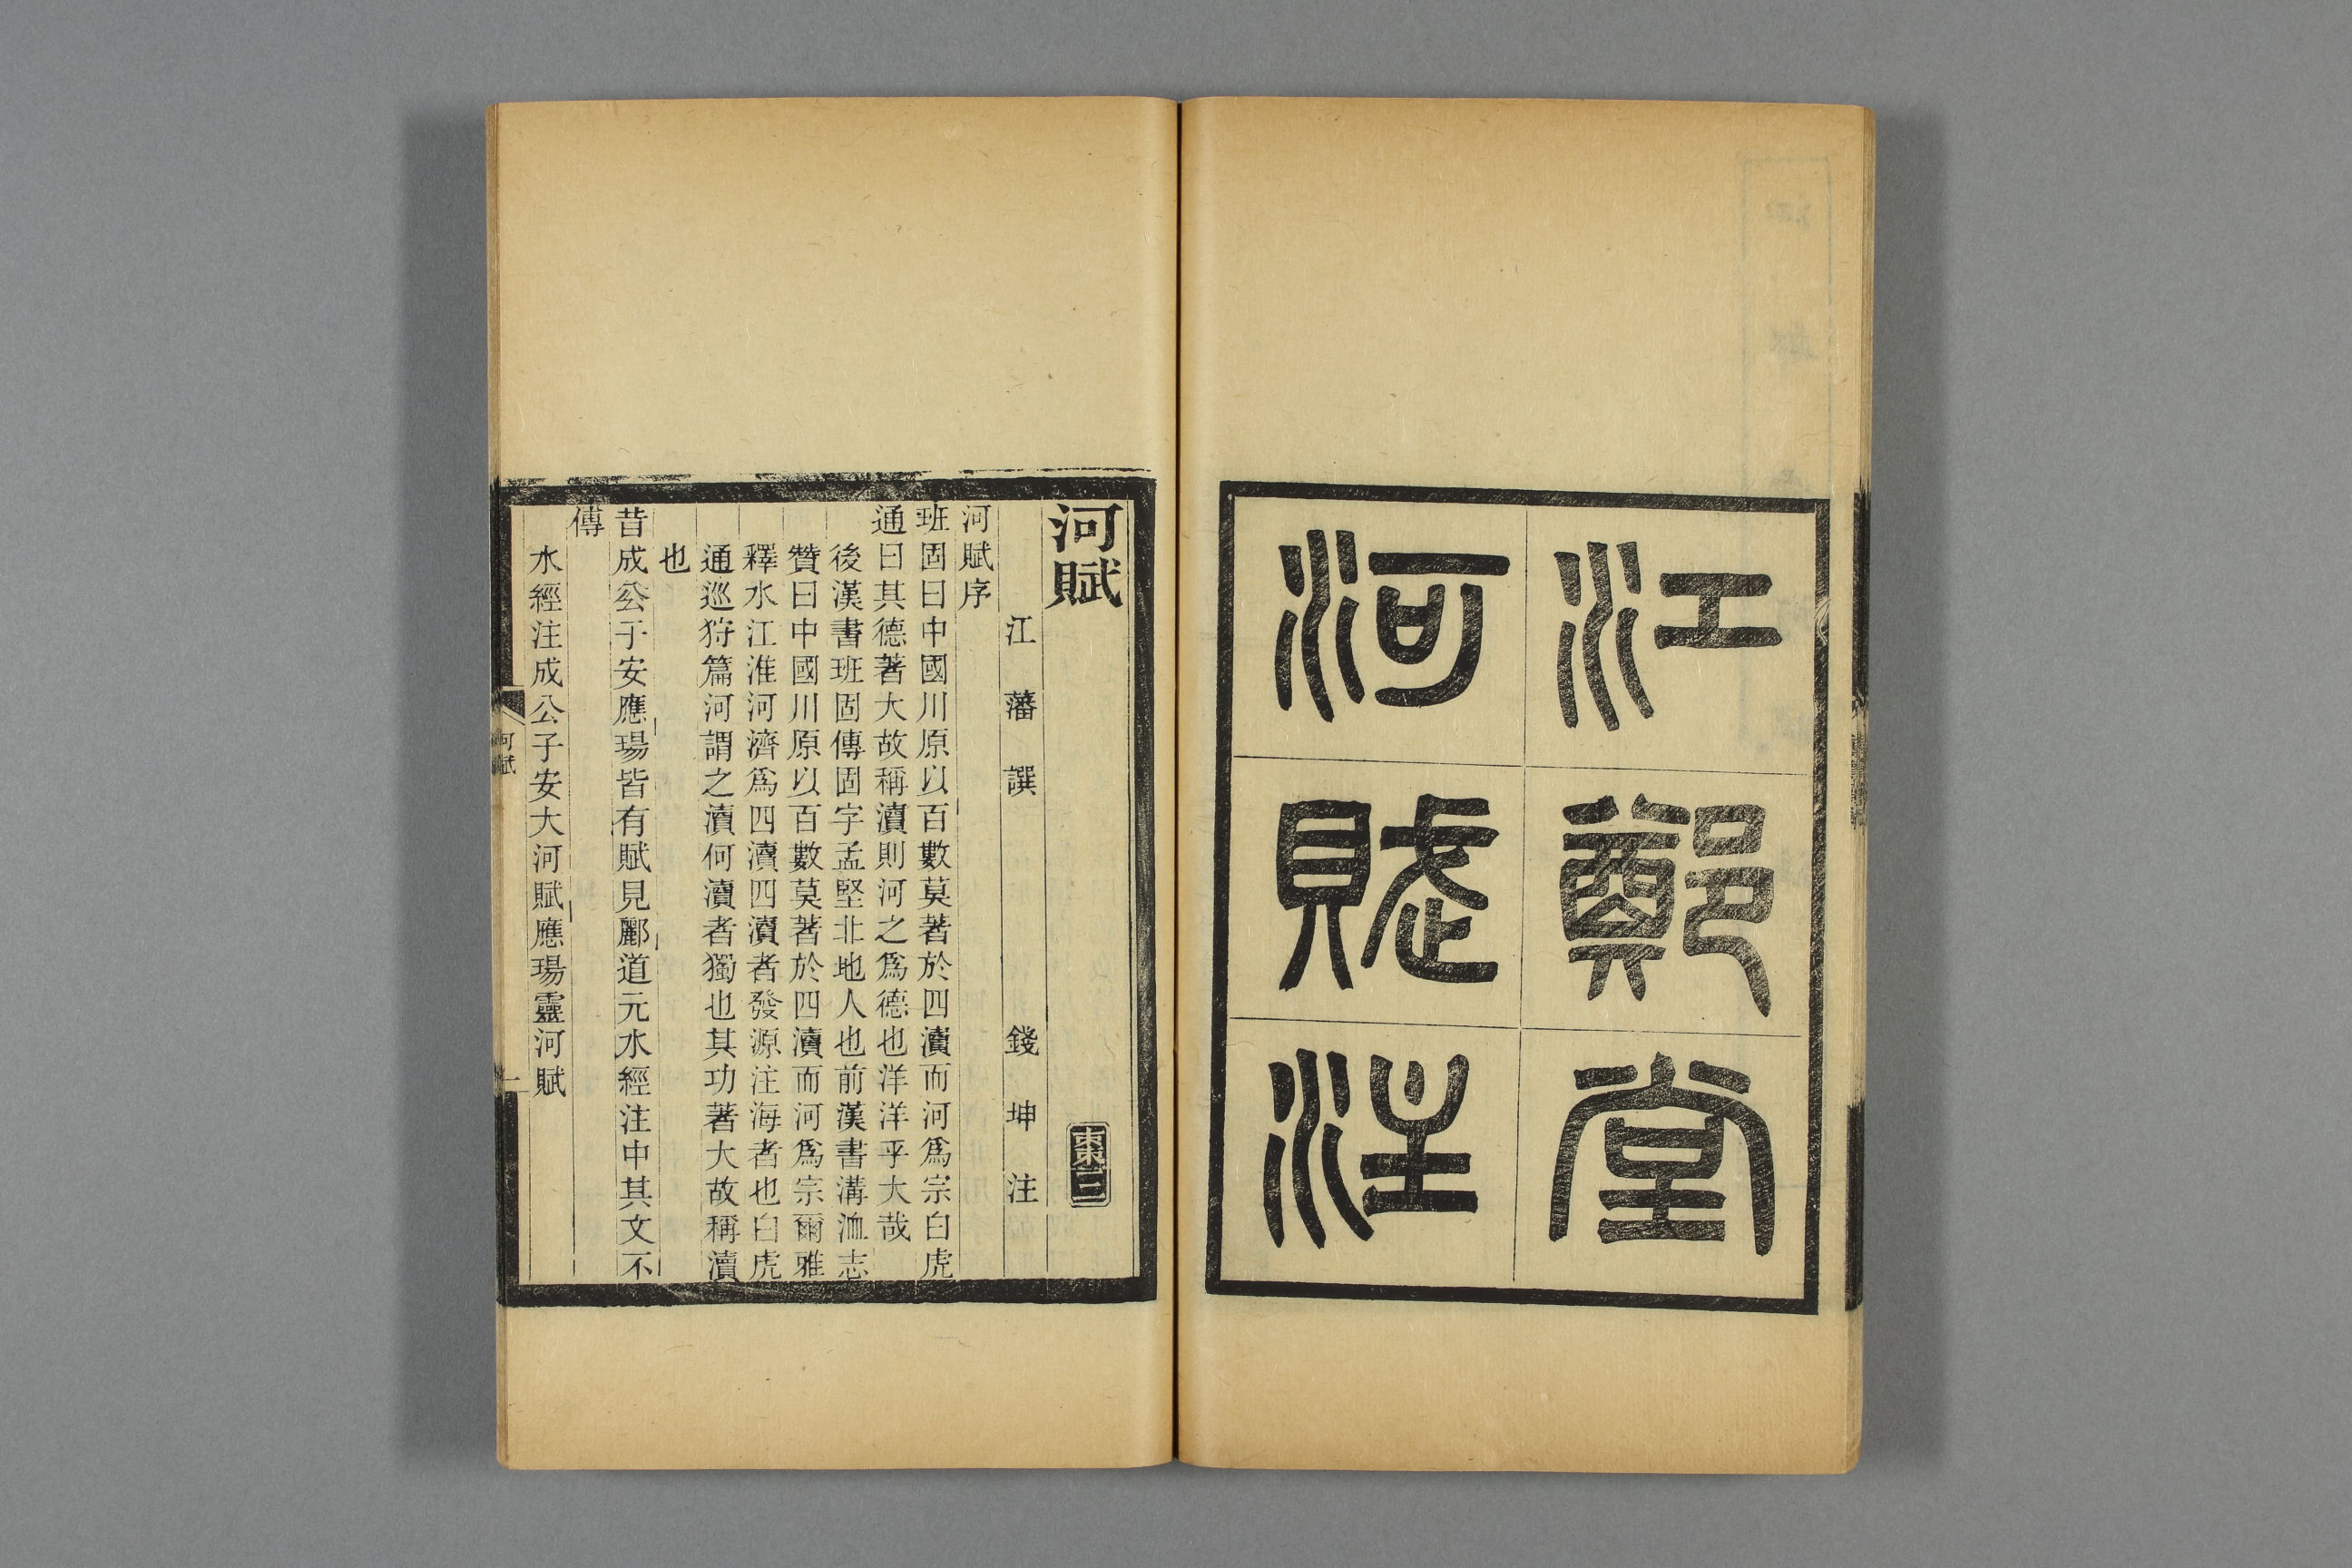 江鄭堂
河賦注
河賦
江藩譔 錢坤注
河賦序
班固曰中國川原以百數莫著於四瀆而河爲宗白虎
通曰其德著大故稱瀆則河之爲德也洋洋乎大哉
後漢書班固傳固字孟堅北地人也前漢書溝洫志
贊曰中國川原以百數莫著於四瀆而河爲宗爾雅
釋水江淮河濟爲四瀆四瀆者發源注海者也白虎
通巡狩篇河謂之瀆何瀆者獨也其功著大故稱瀆
也
昔成公子安應瑒皆有賦見酈道元水經注中其文不
傳
水經注成公子安大河賦應瑒靈河賦
河賦
一